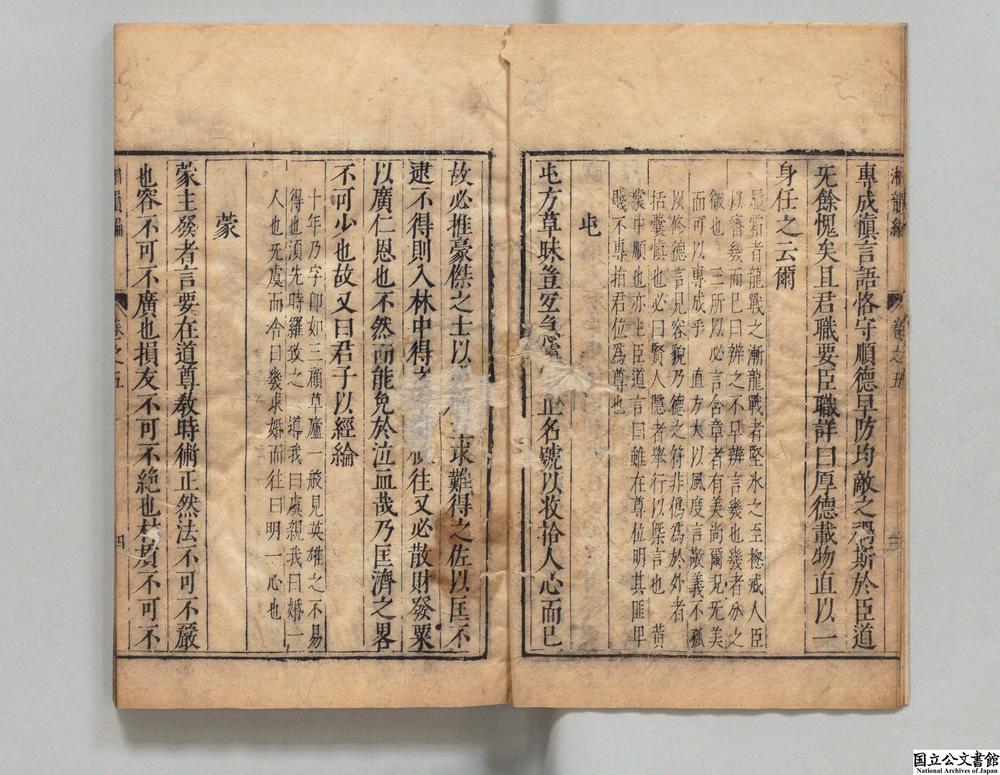 專成旗言語恪守順德早防均敵之禍斯於臣道
旡餘愧矣且君職要臣職詳曰厚德載物直以一
身任之云爾
履霜者龍戰之漸龍戰者堅氷之至懲戒人臣
以審幾而已曰辨之不早辨言幾也幾者必之
徵也 三所以必言含章者有美尚爾况旡美
而可以專成乎 直方大以風度言敬義不孤
以修德言見容貌乃德之符非僞爲於外者
括囊愼也必曰賢人隱者舉行以槩言也 黄
裳中順也亦主臣道也言曰雖在尊位明其匪畀
賤不專指君位爲尊也
屯
屯方草昧豈宜急 正名號以收拾人心而已
故必推豪傑之士以 求難得之佐以匡不
逮不得則入林中得 往又必散財發粟
以廣仁恩也不然而能免於泣血哉乃匡濟之畧
不可少也故又曰君子以經綸
十年乃字卽如三顧草廬一般見英雄之不易
得也須先時羅致之 導我曰虞親我曰婚一
人也旡虞而今日幾求婚而往曰明一心也
蒙
蒙主發者言要在道尊教時術正然法不可不嚴
也容不可不廣也損友不可不絶也材質不可不
卷之五
卷之五
四
国立公文書館
National Archives of Japan